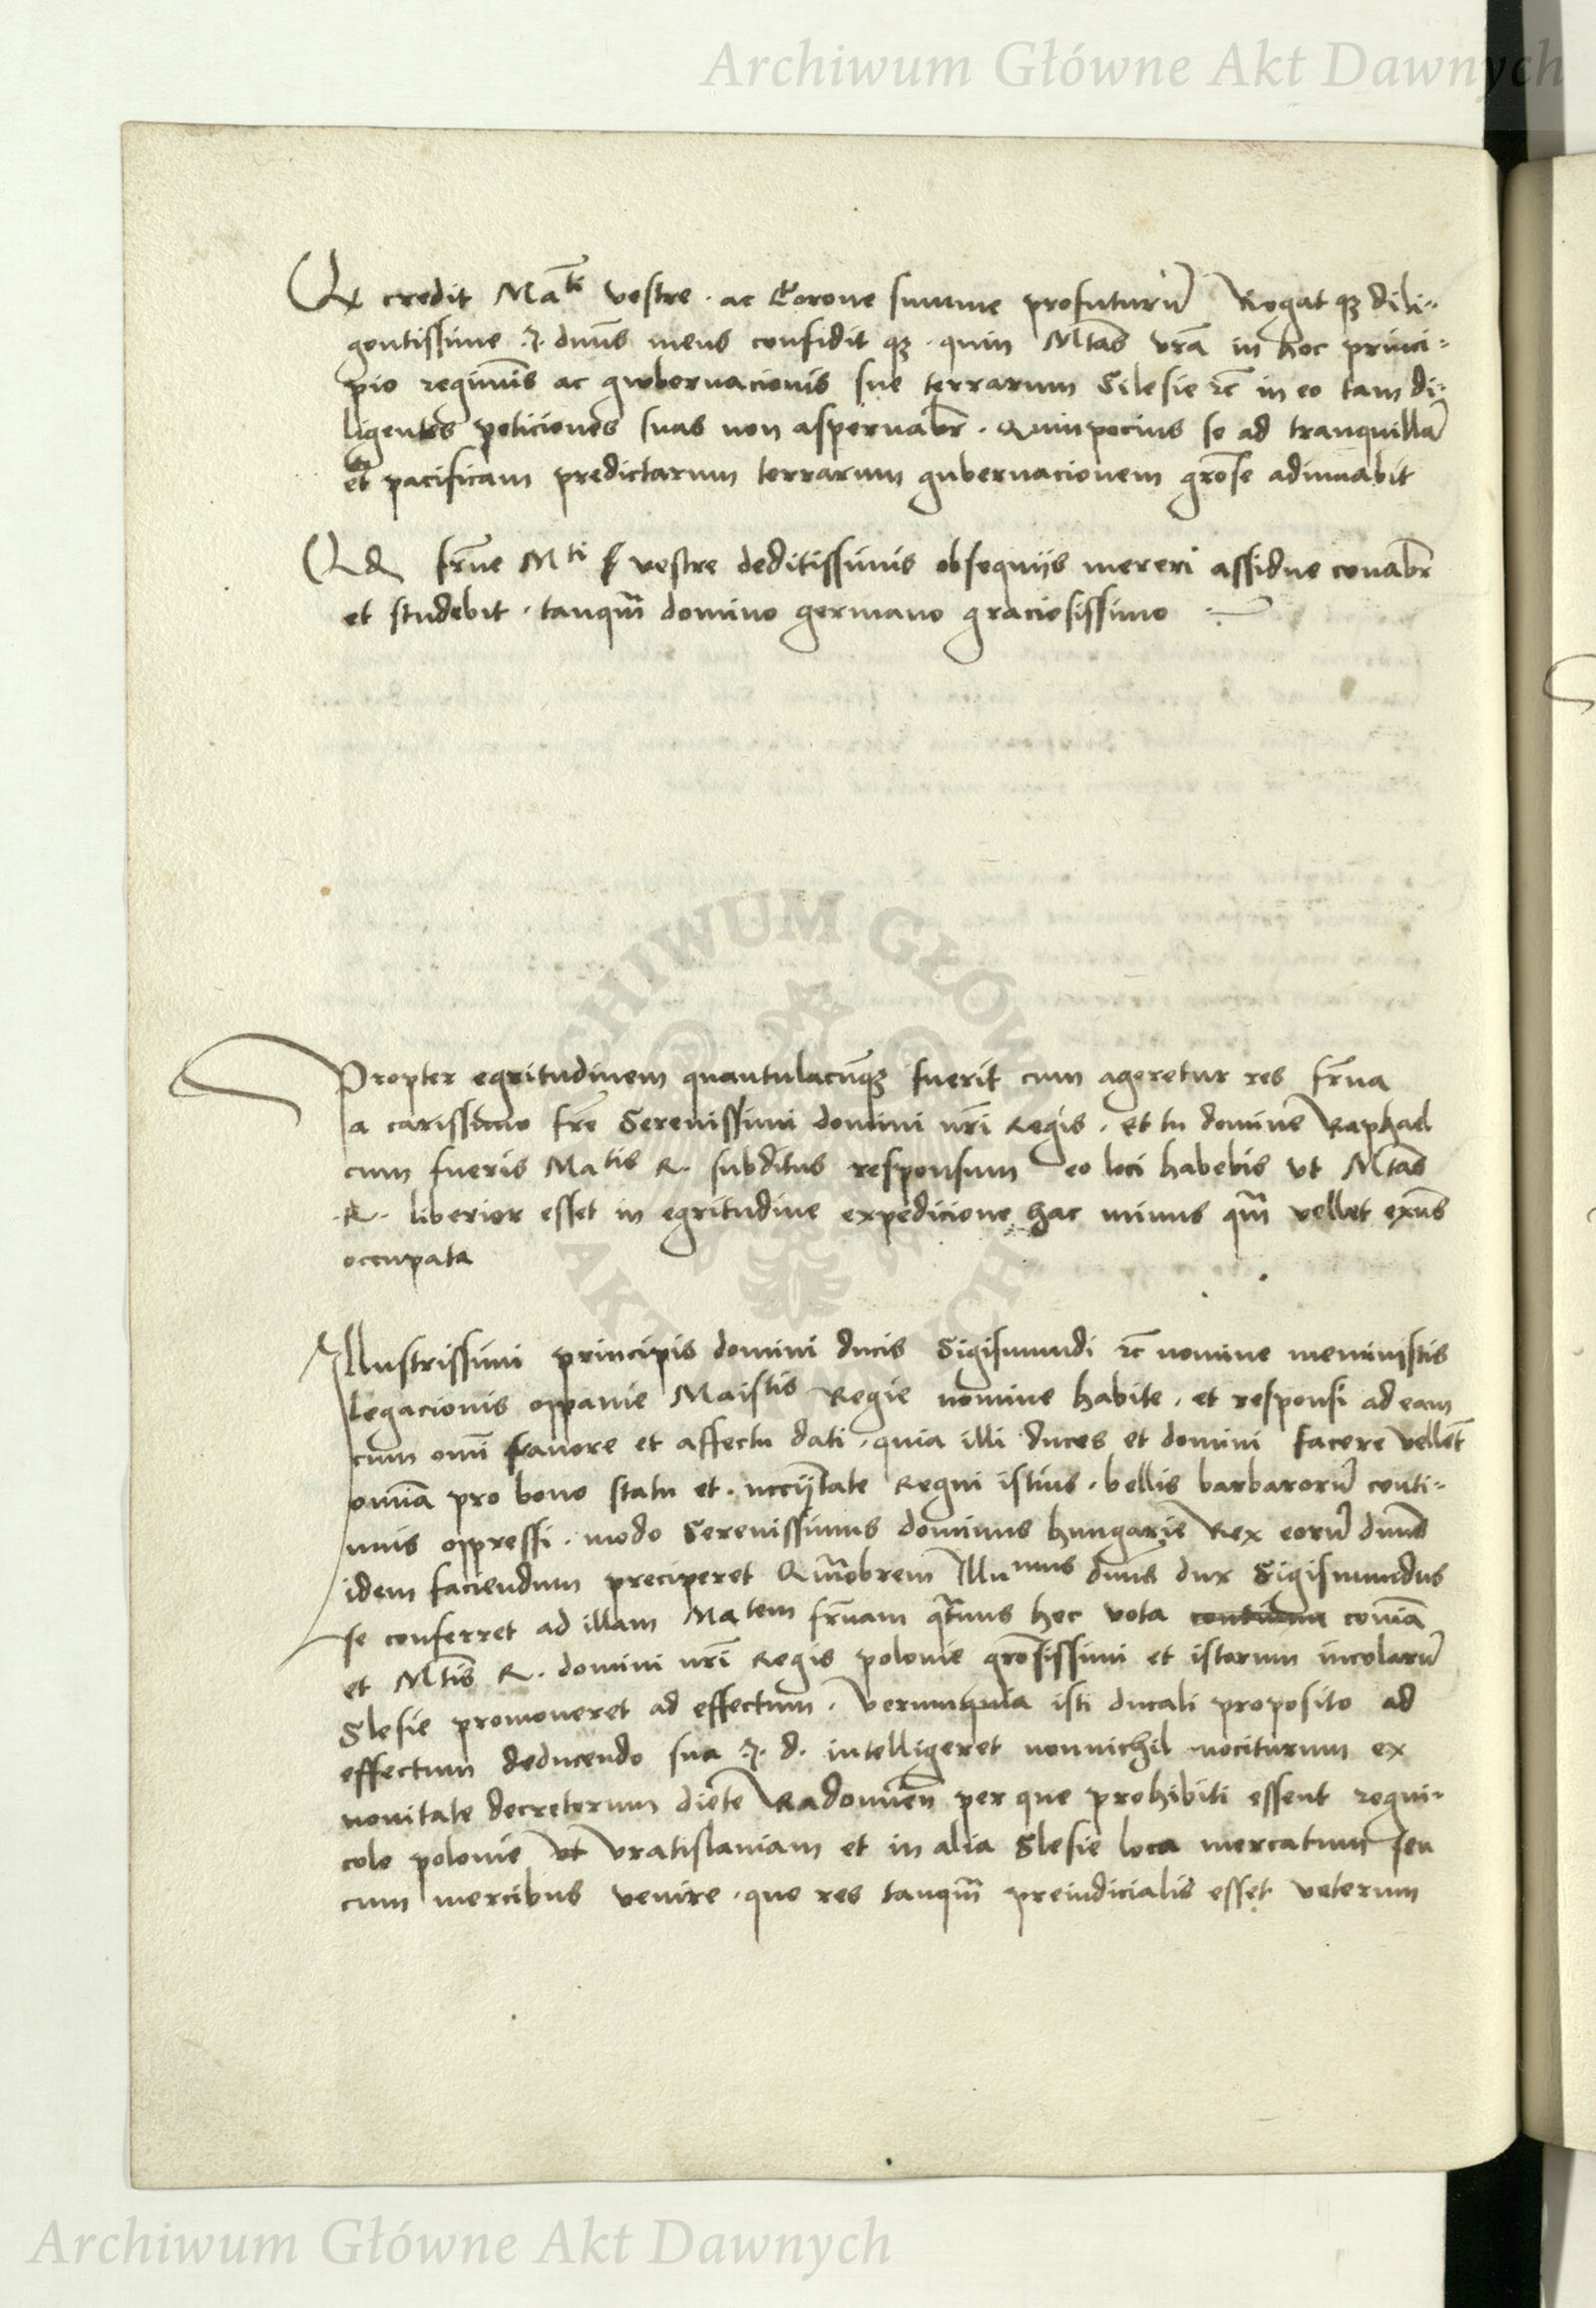 Archiwum Główne Akt Dawnych
Ut credit Ma^ti vestre · ac Corone summe profuturū Rogat qȝ dili=
gentissime · J. dn̄us meus confidit qȝ · quin Mtas vr̄a in hoc princi=
pio regimīs ac gubernacionis sue terrarum Silesie ⁊c̄ in eo tam di=
ligentes peticiones suas non aspernabr̄ · Quinpocius se ad tranquillā
et pacificam predictarum terrarum gubernacionem gro͞se adiuuabit
Qd fr̄ne M^ti vestre deditissimis obsequijs mereri assidue conabr̄
et studebit · tanqm̄ domino germano graciosissimo
Propter egritudinem quantulacūqȝ fuerit cum ageretur res fr̄na
a carissimo fr̄e Serenissimi domini nr̄i Regis · et tu domine Raphael
cum fueris Ma^tis R. subditus responsum eo loci habebis ut Mtas
· R · liberior esset in egritudine expedicione hac minus qm̄ vellet exn̄s
occupata
Illustrissimi principis domini ducis Sigismundi ⁊c̄ nomine meministis
legacionis oppanie Maiestis Regie nomine habite · et responsi ad eam
cum omī fauore et affectu dati · quia illi duces et domini facere vellēt
omnīa pro bono statu et · nccij̄tate Regni istius · bellis barbarorū conti=
nuis oppressi · modo Serenissimus dominus hungarie Rex eorū dnūs
idem faciendum preciperet Qm̄obrem Illu^mus dn̄us dux Sigismundus
se conferret ad illam Ma^tem fr̄nam qt̄inus hec vota com̄ia
et Mtis R. domini nr̄i Regis polonie gro͞sissimi et istorum incolarū
Slesie promoueret ad effectum · verumquia isti ducali proposito ad
effectum deducendo sua J. d. intelligeret nonnichil nociturum ex
nouitate decretorum diete Radomien̄ per que prohibiti essent regni=
cole polonie ut vratislauiam et in alia Slesie loca mercatum seu
cum mercibus venire · que res tanqm̄ preiudicialis esset veterum
ARCHIWUM GŁÓWNE
AKT DAWNYCH
Archiwum Główne Akt Dawnych